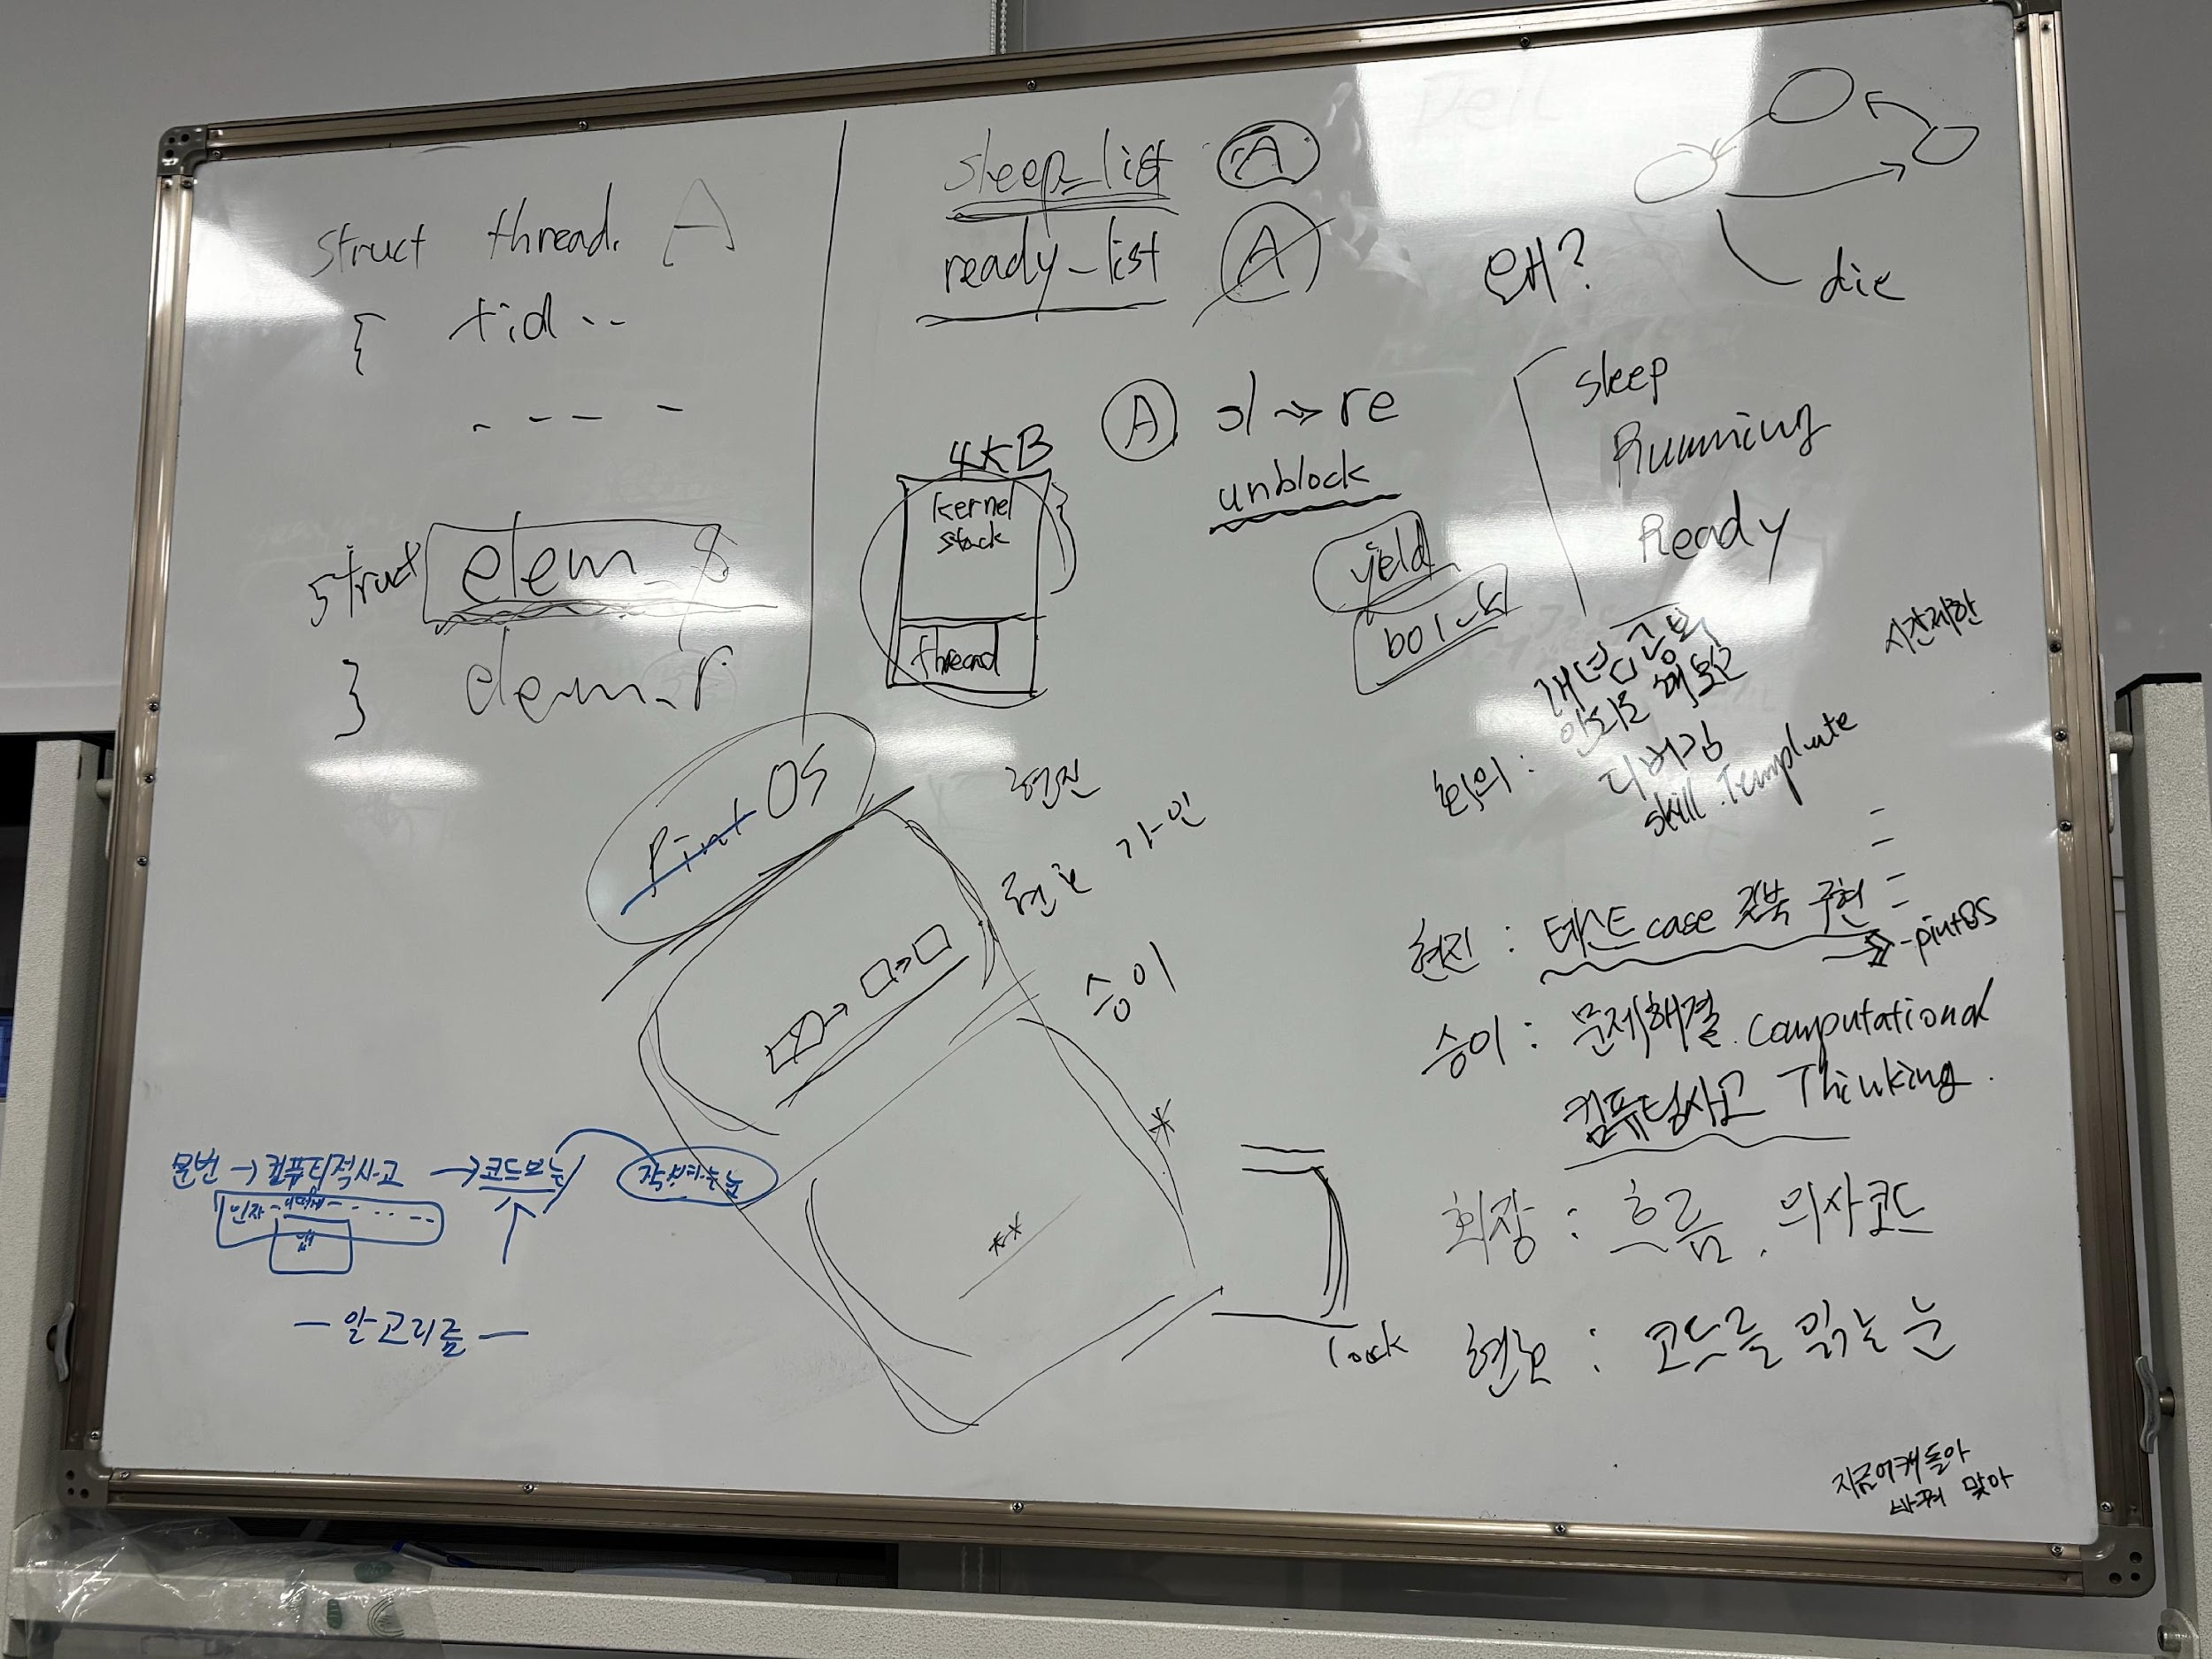 struct thread. A
{ tid --
- - - -
struct elem_s
} elem_r
sleep_list A
ready_list A
A sl → re
unblock
yield
4KB
kernel
stack
thread
왜?
die
sleep
Running
Ready
시간제한
개념 공부
회의 :
디버깅
skill Template
Pint OS
현진
현호 가인
승이
현진 : 테스트 case 전부 구현
→ - pintOS
승이 : 문제해결. Computational
컴퓨팅사고 Thinking.
회장 : 흐름, 의사코드
현호 : 코드를 읽는 눈
*
**
lock
문법 → 컴퓨팅적사고 → 코드보는
인자 -
- 알고리즘 -
지금어캐돌아
바꿔 맞아